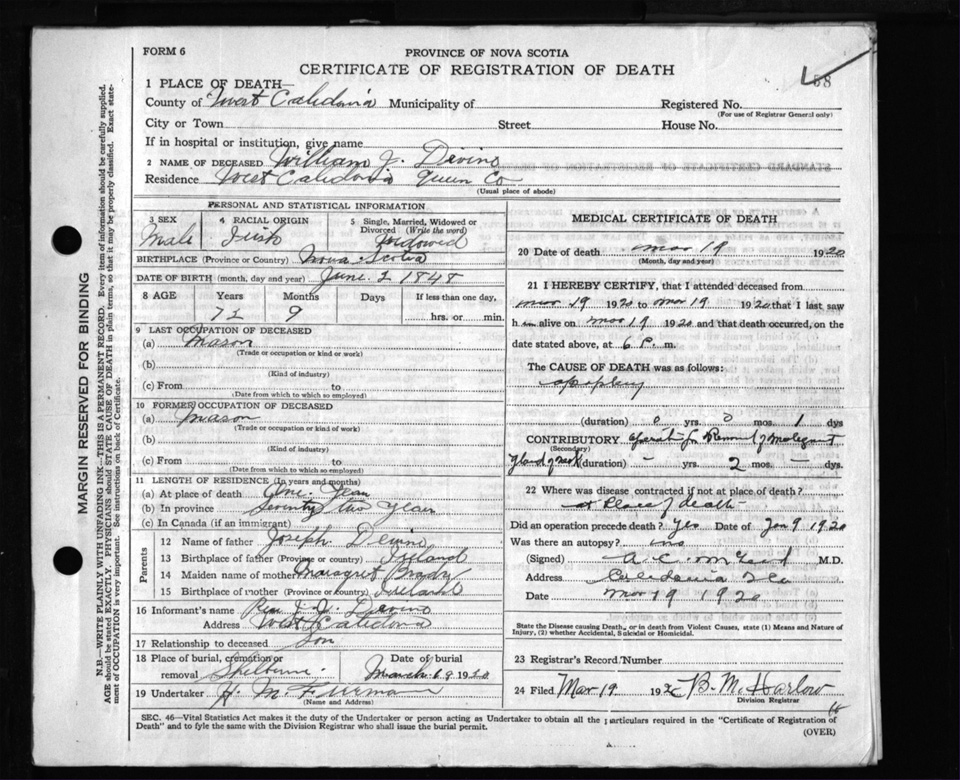 FORM 6
PROVINCE OF NOVA SCOTIA
CERTIFICATE OF REGISTRATION OF DEATH
1 PLACE OF DEATH—
County of West Calidonia Municipality of
Registered No.
(For use of Registrar General only)
City or Town Street House No.
If in hospital or institution, give name
2 NAME OF DECEASED William J. Devino
Residence West Calidonia Queen Co
(Usual place of abode)
PERSONAL AND STATISTICAL INFORMATION
3 SEX Male
4 RACIAL ORIGIN Irish
5 Single, Married, Widowed or Divorced (Write the word) Widowed
BIRTHPLACE (Province or Country) Nova Scotia
DATE OF BIRTH (month, day and year) June 2 1848
8 AGE Years Months Days If less than one day,
72 9 hrs. or min.
9 LAST OCCUPATION OF DECEASED
(a) Mason
(Trade or occupation or kind or work)
(b)
(Kind of industry)
(c) From to
(Date from which to which so employed)
10 FORMER OCCUPATION OF DECEASED
(a) Mason
(Trade or occupation or kind of work)
(b)
(Kind of industry)
(c) From to
(Date from which to which so employed)
11 LENGTH OF RESIDENCE (In years and months)
(a) At place of death One Year
(b) In province Seventy two Year
(c) In Canada (if an immigrant)
Parents
12 Name of father Joseph Devino
13 Birthplace of father (Province or country) Ireland
14 Maiden name of mother Margret Brady
15 Birthplace of mother (Province or country) Ireland
16 Informant's name Devino
Address West Calidonia
17 Relationship to deceased Son
18 Place of burial, cremation or removal Shelburne
Date of burial March 1920
19 Undertaker H. M.
(Name and Address)
MEDICAL CERTIFICATE OF DEATH
20 Date of death mar 19 1920
(Month, day and year)
21 I HEREBY CERTIFY, that I attended deceased from
mar 19 1920 to mar 19 1920 that I last saw
him alive on mar 19 1920 and that death occurred, on the
date stated above, at 6 P. m.
The CAUSE OF DEATH was as follows:
apoplexy
(duration) 0 yrs. 0 mos. 1 dys.
CONTRIBUTORY operation for Removal of malignant
(Secondary)
Gland of neck (duration) – yrs. 2 mos. – dys.
22 Where was disease contracted if not at place of death?
at place of death
Did an operation precede death? Yes Date of Jan 9 1920
Was there an autopsy? no
(Signed) A. C. M.D.
Address Caledonia
Date Mar 19 1920
State the Disease causing Death, or in death from Violent Causes, state (1) Means and Nature of
Injury, (2) whether Accidental, Suicidal or Homicidal.
23 Registrar's Record Number
24 Filed Mar 19 192 B. M. Harlow
Division Registrar
SEC. 46—Vital Statistics Act makes it the duty of the Undertaker or person acting as Undertaker to obtain all the particulars required in the "Certificate of Registration of
Death" and to fyle the same with the Division Registrar who shall issue the burial permit.
(OVER)
MARGIN RESERVED FOR BINDING
N.B.—WRITE PLAINLY WITH UNFADING INK—THIS IS A PERMANENT RECORD. Every item of information should be carefully supplied.
AGE should be stated EXACTLY. PHYSICIANS should STATE CAUSE OF DEATH in plain terms, so that it may be properly classified. Exact state-
ment of OCCUPATION is very important. See instructions on back of Certificate.